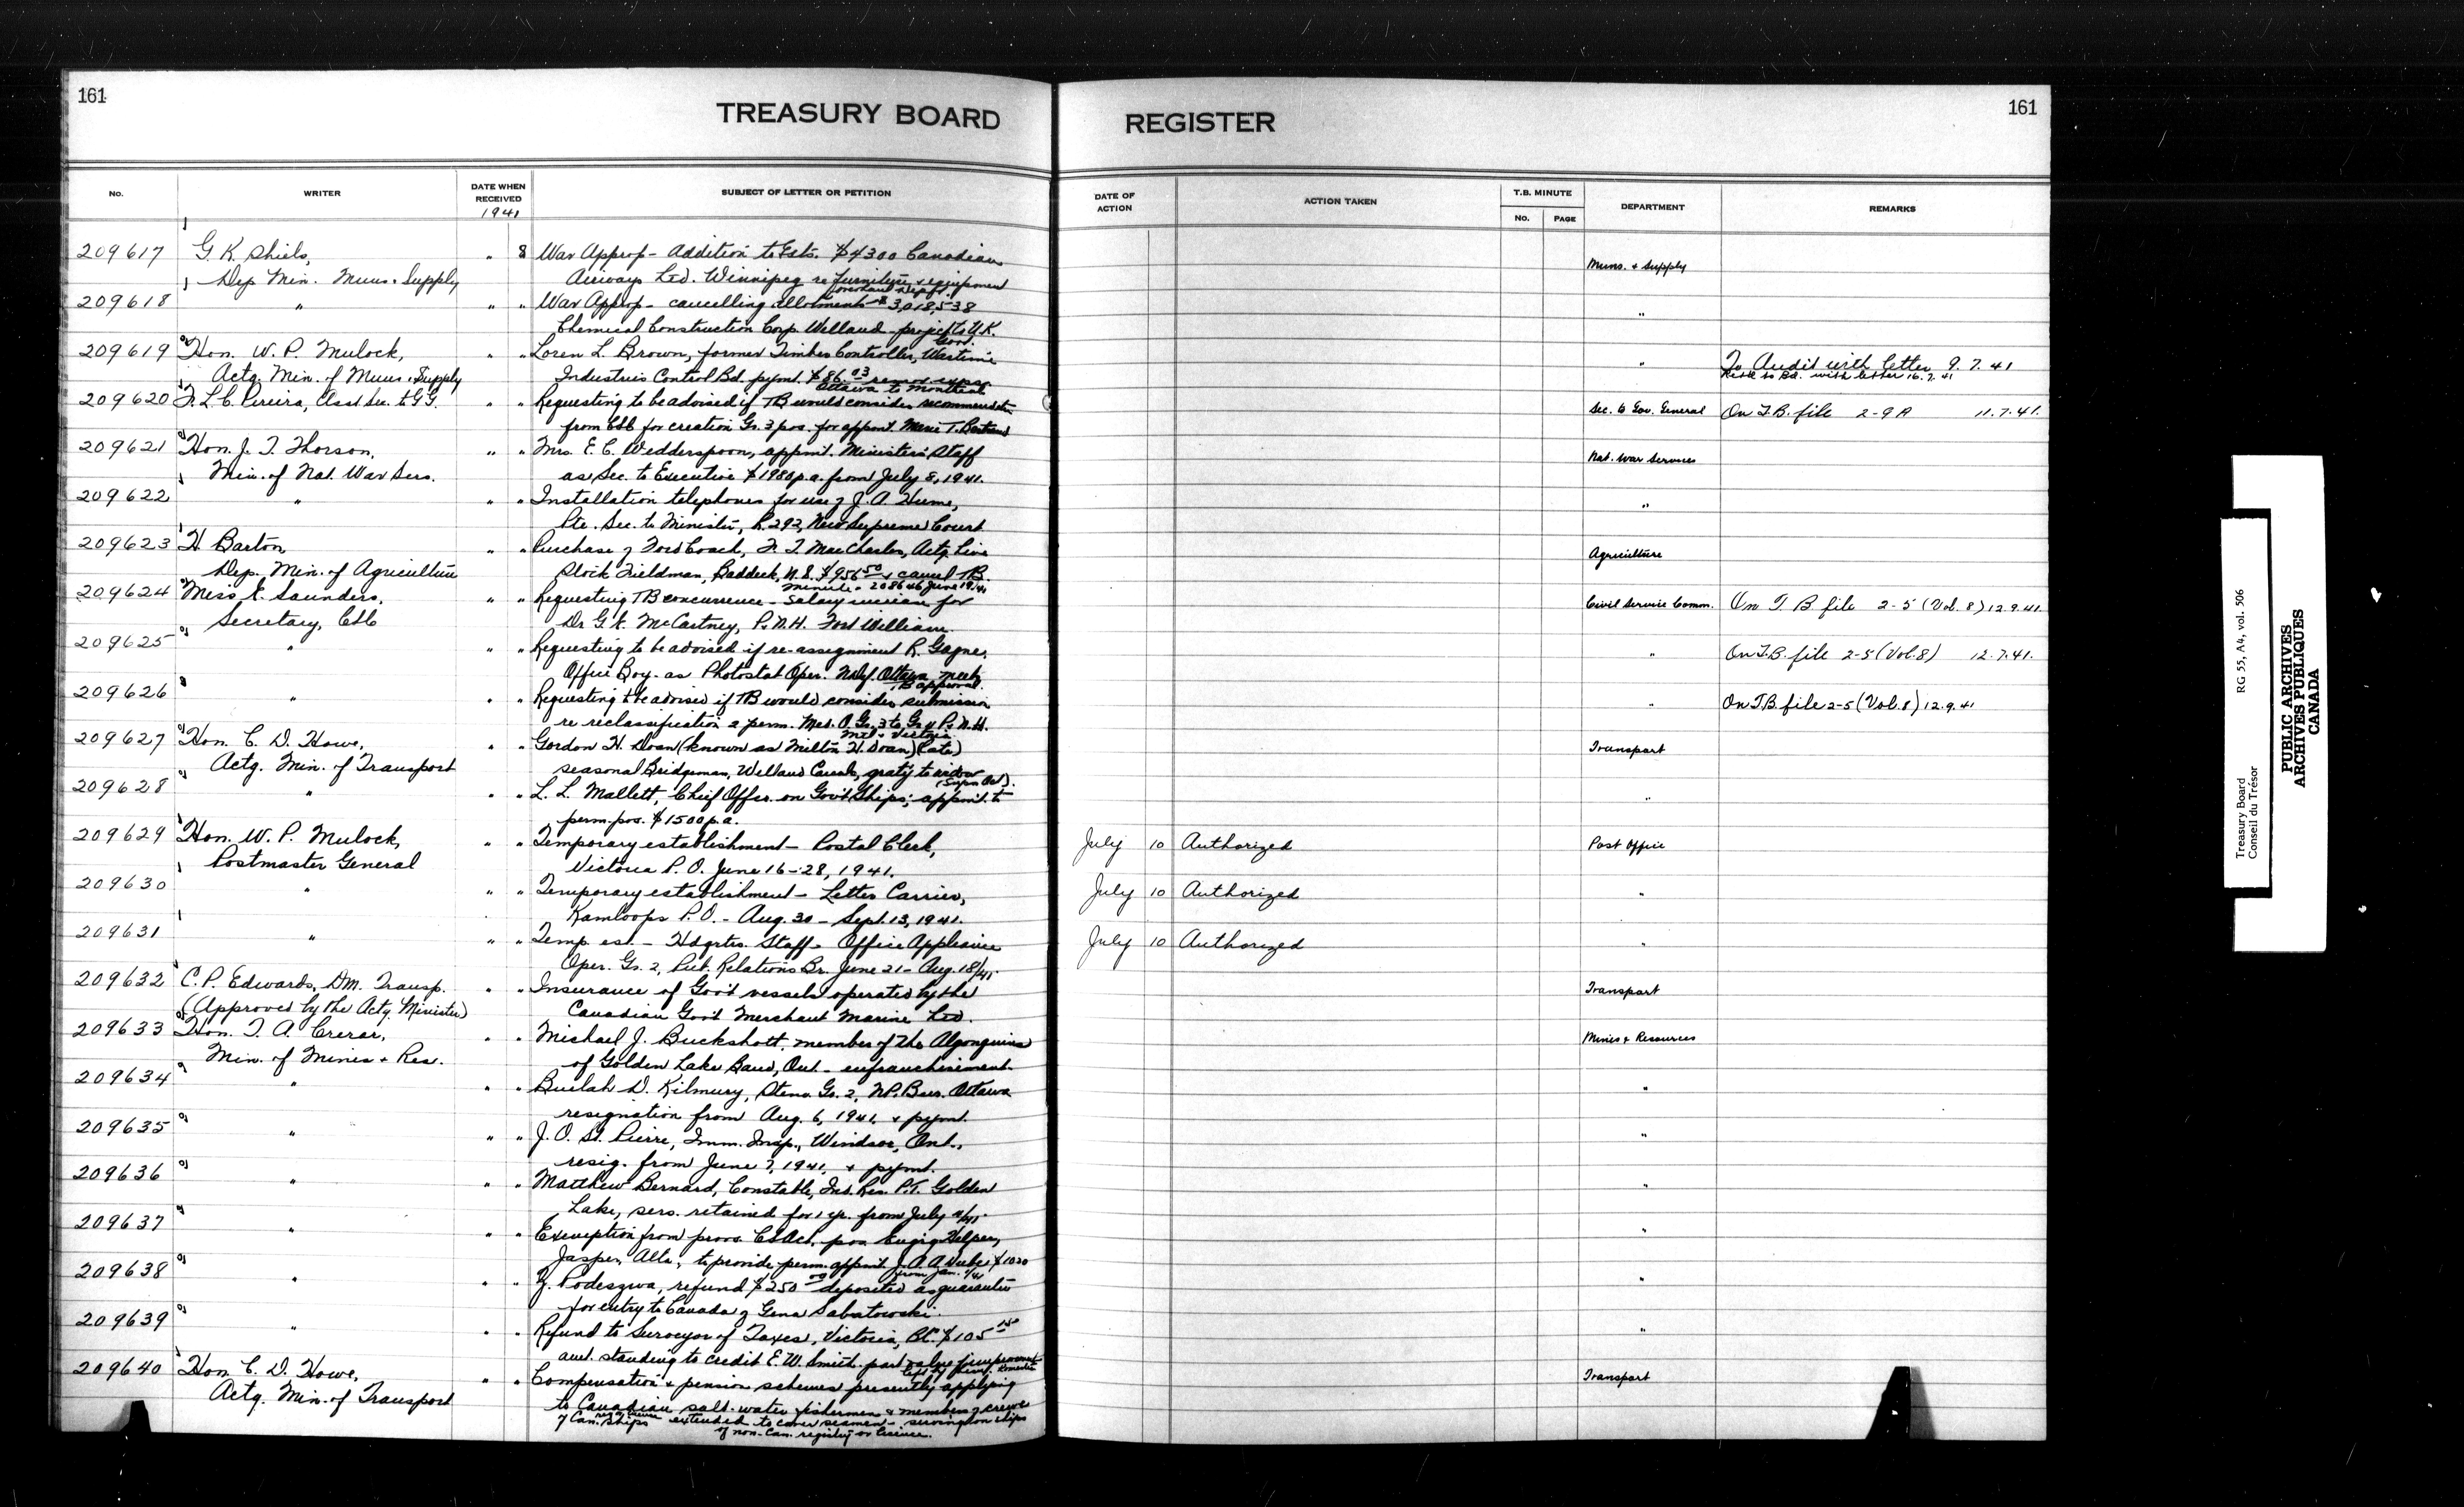 161
TREASURY BOARD
REGISTER
161
No.
WRITER
DATE WHEN RECEIVED
1941
SUBJECT OF LETTER OR PETITION
DATE OF ACTION
ACTION TAKEN
T.B. MINUTE
No.
PAGE
DEPARTMENT
REMARKS
209617 G. K. Shiels, " 8 War Approp - Addition to Ests. $4300 Canadian
Dep Min. Muns. Supply Airways Ltd. Winnipeg re furniture & equipment Muns. & Supply
overhaul Depôt.
209618 " " " War Approp - cancelling allotment $3,018,538 "
Chemical Construction Corp. Welland - project to U.K. Govt.
209619 Hon. W. P. Mulock, " " Loren L. Brown, former Timber Controller, Wartime " To Audit with letter 9.7.41
Actg. Min. of Muns. Supply Industries Control Bd. paymt. $86.03 Ottawa to Montreal with letter 16.7.41
209620 F. L. C. Pereira, Asst Sec. to G.G. " " Requesting to be advised if TB would consider recommendation Sec. to Gov. General On T.B. file 2-9A 11.7.41.
from CSC for creation Gr. 3 pos. for appoint. T. Bertrand
209621 Hon. J. T. Thorson, " " Mrs. E. C. Wedderspoon, appmt. Minister's Staff Nat. War Services
Min. of Nat. War Sers. as Sec. to Executive $1980 p.a. from July 8, 1941.
209622 " " " Installation telephones for use of J. A. Hume, "
Pte. Sec. to Minister, R. 292, New Supreme Court
209623 H Barton, " " Purchase of Ford Coach, F. T. MacCharles, Actg. Live Agriculture
Dep. Min. of Agriculture Stock Fieldman, Baddeck, N.S. $956.50 & cancel TB.
Minute - 208646 June 19/41
209624 Miss E. Saunders, " " Requesting TB concurrence - salary increase for Civil Service Comm. On T B file 2-5 (Vol. 8) 12.9.41.
Secretary, CSC Dr G. E. McCartney, P. N. H. Fort William.
209625 " " " Requesting to be advised if re-assignment R. Gagne, " On T.B. file 2-5 (Vol. 8) 12.7.41.
Office Boy - as Photostat Oper. Ottawa, needs
TB approval.
209626 " " " Requesting to be advised if TB would consider submission " On T.B. file 2-5 (Vol. 8) 12.9.41
re reclassification 2 perm. Med. O. Gr. 3 to Gr. 4 P. & N. H.
Mtl & Victoria
209627 Hon. C. D. Howe, " " Gordon H. Doan (known as Milton H. Doan) (late) Transport
Actg. Min. of Transport seasonal Bridgeman, Welland Canals, graty to widow
(Supn Act).
209628 " " " L. L. Mallett, Chief Offer. on Gov't Ships; appmt. to "
perm. pos. $1500 p.a.
209629 Hon. W. P. Mulock, " " Temporary establishment - Postal Clerk, July 10 Authorized Post Office
Postmaster General Victoria P. O. June 16 - 28, 1941.
209630 " " " Temporary establishment - Letter Carrier, July 10 Authorized "
Kamloops P. O. - Aug. 30 - Sept. 13, 1941.
209631 " " " Temp est. - Hdqrtrs. Staff - Office Appliance July 10 Authorized "
Oper. Gr. 2, Pub. Relations Br. June 21 - Aug. 18/41.
209632 C. P. Edwards, DM. Transp. " " Insurance of Gov't vessels operated by the Transport
(Approved by the Actg. Minister) Canadian Gov't Merchant Marine Ltd.
209633 Hon. T. A. Crerar, " " Michael J. Buckshott, member of The Algonquins Mines & Resources
Min. of Mines & Res. of Golden Lake Band, Ont. - enfranchisement.
209634 " " " Beulah D. Kilmury, Steno Gr. 2, NP. Bur. Ottawa "
resignation from Aug. 6, 1941, & paymt.
209635 " " " J. O. St. Pierre, Imm. Insp., Windsor, Ont., "
resig. from June 7, 1941, & paymt.
209636 " " " Matthew Bernard, Constable, Ind. Res. P.T. Golden "
Lake, sers. retained for 1 yr. from July 4/41.
209637 " " " Exemption from provs. CS Act, pos. Engrg Helper, "
Jasper, Alta., to provide perm. appmt. J. A. A. Dube $1020
from Jan. 1/41
209638 " " " Z. Podeszwa, refund $250.00 deposited as guarantee "
for entry to Canada of Gena Sabatowski.
209639 " " " Refund to Surveyor of Taxes, Victoria, BC. $105.50 "
amt. standing to credit E. W. Smith. part value improvements
209640 Hon. C. D. Howe, " " Compensation & pension schemes presently applying Transport
Actg. Min. of Transport to Canadian salt-water fishermen & members of crews
of Can. ships extended to cover seamen - serving on ships
of non-Can. registry or licence.
Treasury Board
Conseil du Trésor
RG 55, A4, vol. 506
PUBLIC ARCHIVES
ARCHIVES PUBLIQUES
CANADA